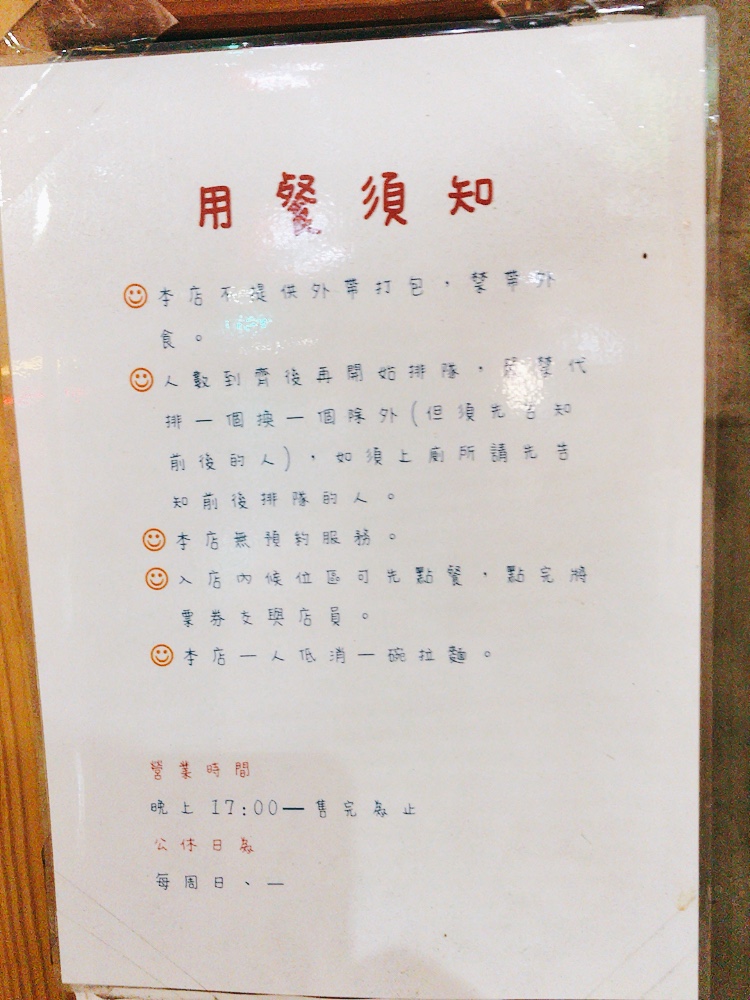 用餐須知
本店不提供外帶打包，禁帶外
食。
人數到齊後再開始排隊，嚴禁代
排一個換一個除外(但須先告知
前後的人)，如須上廁所請先告
知前後排隊的人。
本店無預約服務。
入店內候位區可先點餐，點完將
票券交與店員。
本店一人低消一碗拉麵。
營業時間
晚上 17:00—售完為止
公休日為
每周日、一